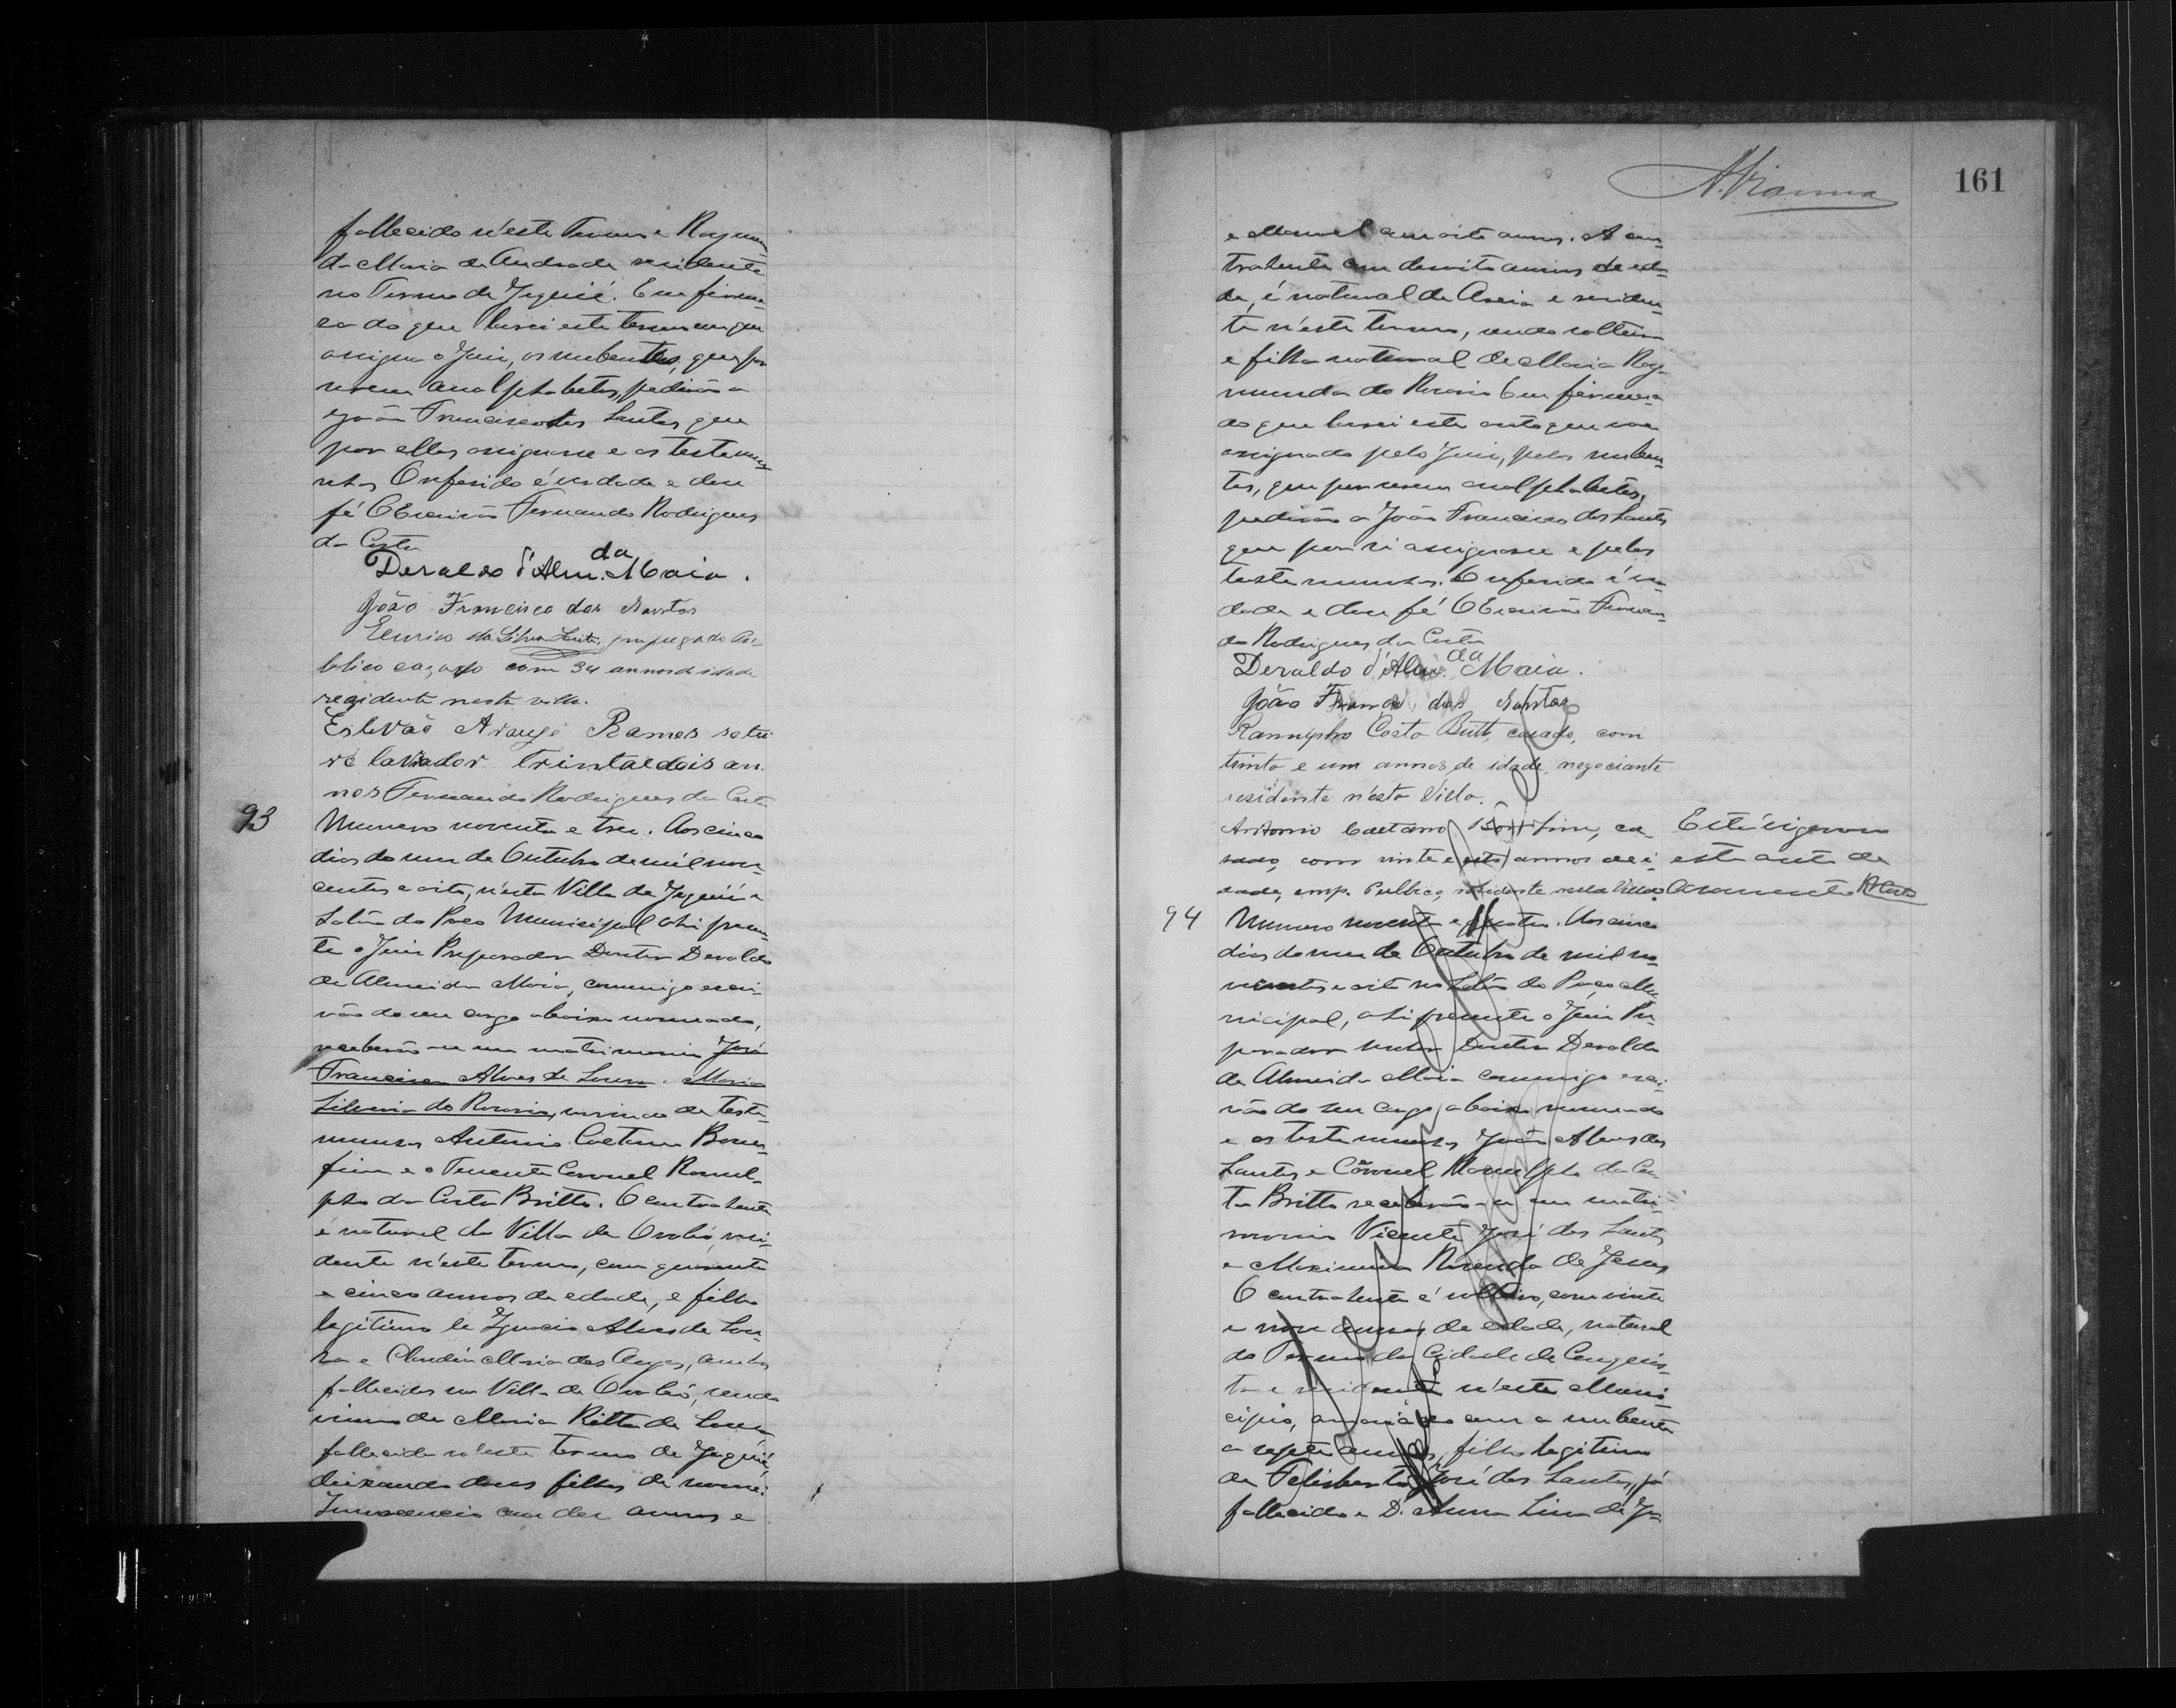 fallecido n'este Termo e Raymun-
da Maria de Andrade residente
no Termo de Jequié. E em firme-
za do que lavrei este termo em que
assigna o Juiz, os nubentes, que por
serem analphabetos, pedirão a
João Francisco dos Santos que
por elles assignasse e as testemu-
nhas O referido é verdade e dou
fé O Escrivão Fernando Rodrigues
da Costa
Deraldo d'Alm.da Maia.
João Francisco dos Santos
Eurico da Silva empregado Pu-
blico cazado com 34 annos de idade
rezidente nesta villa.
Estevão Araujo Ramos soltei
ro lavrador trinta e dois an.
nos Fernando Rodrigues da Costa
93 Numero noventa e tres. Aos cinco
dias do mez de Outubro de mil nove-
centos e oito, n'esta Villa de Jequié e
Salão do Paço Municipal ahi presen-
te o Juiz Preparador Doutor Deraldo
de Almeida Maia, commigo escri-
vão do seu cargo abaixo nomeado,
receberão-se em matrimonio José
Francisco Alves de Souza e Maria
Silveria do Rosario, servindo de teste
munhas Antonio Caetano Bom-
fim e o Tenente Coronel Ranul-
pho da Costa Britto. O contrahente
é natural da Villa de Orobó, resi-
dente n'este termo, com quarenta
e cinco annos de edade, e filho
legitimo de Ignacio Alves de Sou-
za e Claudia Maria dos Anjos, ambos
fallecidos na Villa de Orobó, sendo
viuvo de Maria Ritta de Souza,
fallecida n'este termo de Jequié,
deixando dous filhos de nome:
Innocencio com dez annos e
161
A. Vianna
e Manoel com oito annos. A con-
trahente com dezoito annos de eda-
de, é natural de Areia e residen-
te n'este termo, sendo solteira
e filha natural de Maria Ray-
munda do Rosario Em firmeza
do que lavrei este auto que vae
assignado pelo Juiz, pelos nuben-
tes, que por serem analphabetos,
pedirão a João Francisco dos Santos
que por si assignasse e pelas
testemunhas. O referido é ver-
dade e dou fé O Escrivão Fernan-
do Rodrigues da Costa
Deraldo d'Alm.da Maia.
João Franco dos Santos
Ranulpho Costa Britto, casado, com
trinta e um annos de idade, negociante
residente n'esta Villa.
Antonio Caetano Bom fim, ca
sado, com vinte e oito annos de i
dade, emp. Publico, residente nesta Villa.
Está
este auto de
Casamento RCosta
94 Numero noventa e quatro. Aos cinco
dias do mez de Outubro de mil no-
vecentos e oito no Salão do Paço Mu-
nicipal, ahi presente o Juiz Pre-
parador Doutor Deraldo
de Almeida Maia commigo escri-
vão do seu cargo abaixo nomeado
e as testemunhas João Alves dos
Santos e Coronel Ranulpho da Cos-
ta Britto receberão-se em matri-
monio Vicente José dos Santos
e Maximina Rosenda de Jesus
O contrahente é solteiro, com vinte
e nove annos de edade, natural
do Termo da Cidade de Conquis-
ta e residente n'este Muni-
cipio, amasiado com a nubente
a sete annos, filho legitimo
de Felisberto José dos Santos, já
fallecido e D. Anna Lina de Je-